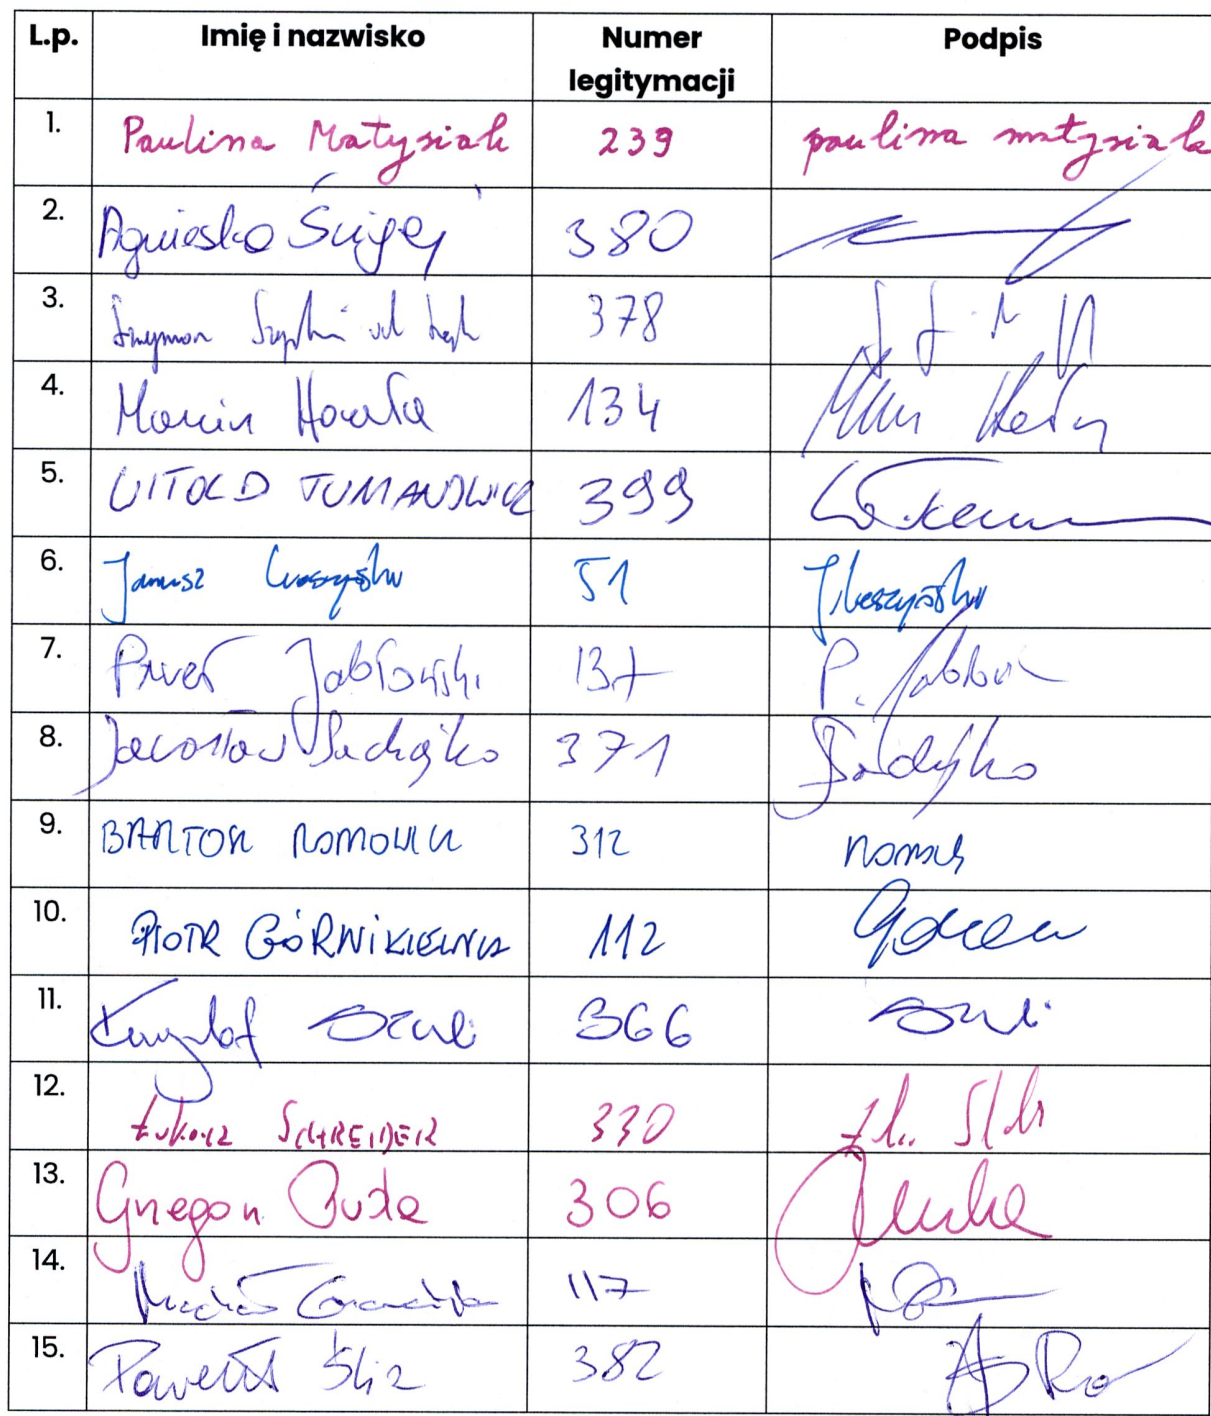 L.p. Imię i nazwisko Numer legitymacji Podpis
1. Paulina Matysiak 239 paulina matysiak
2. Agnieszka Ścigaj 380
3. Szymon Szynkowski vel Sęk 378
4. Marcin Horała 134
5. WITOLD TUMANOWICZ 399
6. Janusz Cieszyński 51 J. Cieszyński
7. Paweł Jabłoński 137 P. Jabłoń
8. Jarosław Sachajko 371 Sachajko
9. BARTOSZ ROMOWICZ 312
10. PIOTR GÓRNIKIEWICZ 112
11. Krzysztof Szulc 366
12. Łukasz SCHREIBER 330
13. Grzegorz Puda 306
14. Michał 117
15. Paweł Śliz 382